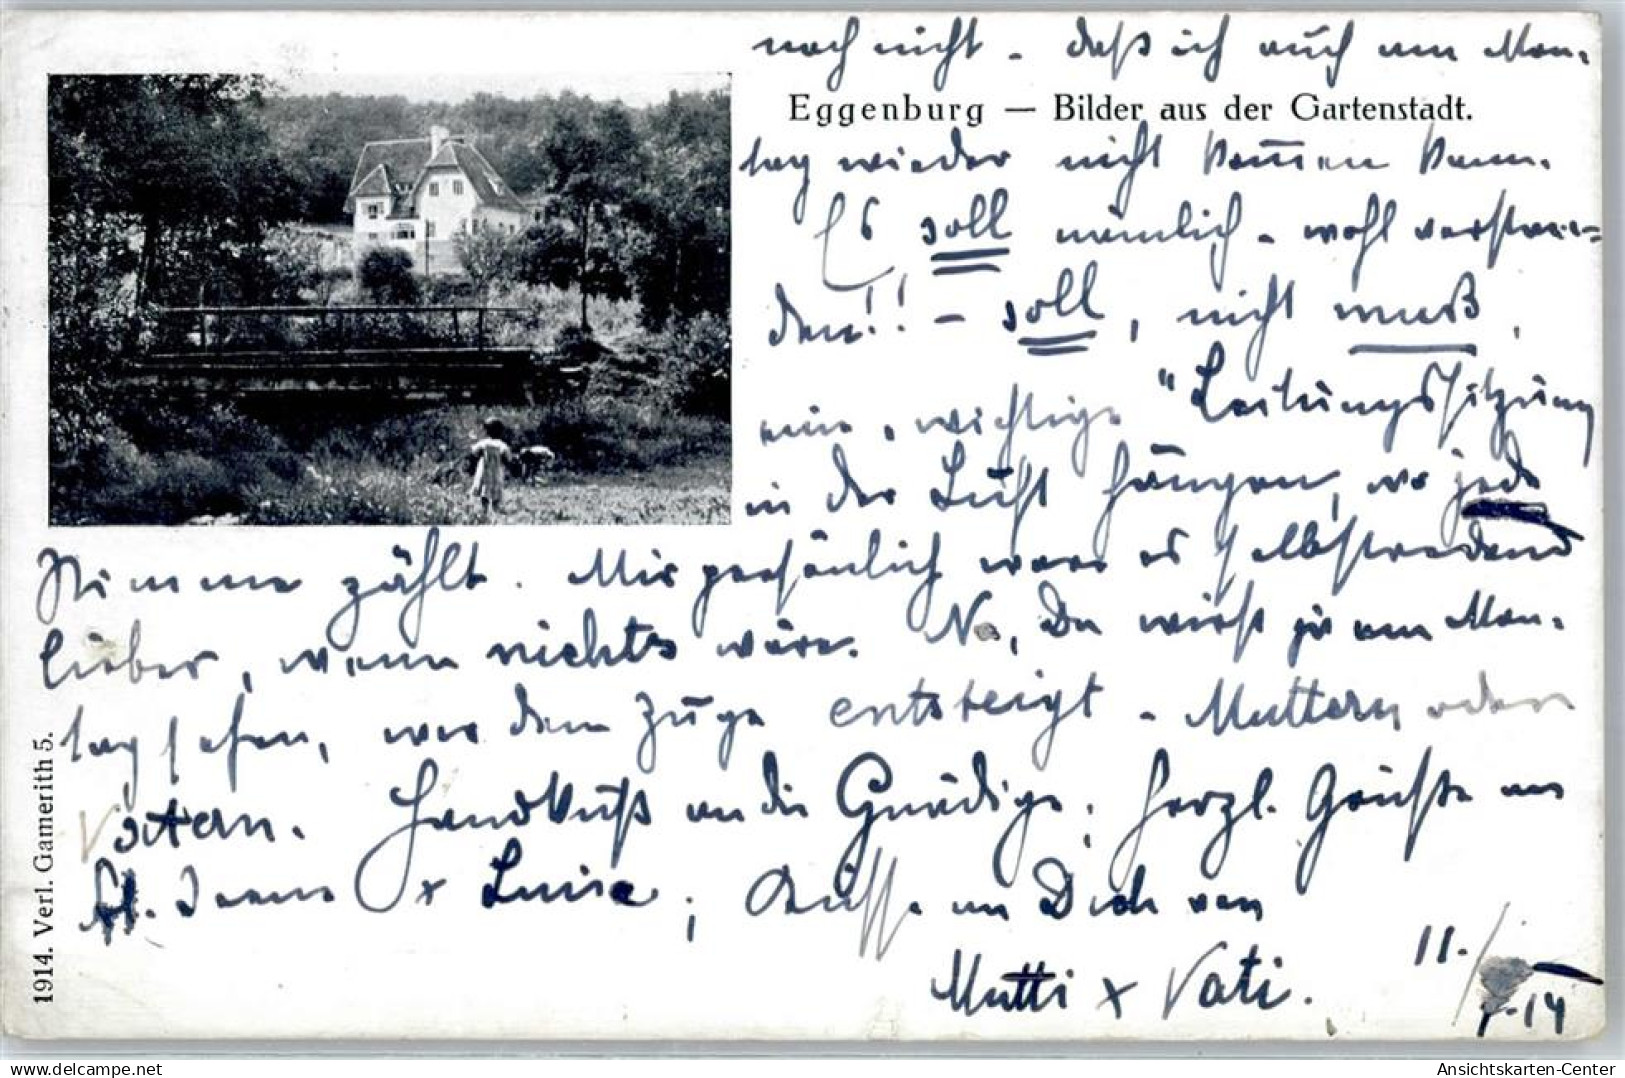 noch nicht - daß ich auch am Mon-
Eggenburg — Bilder aus der Gartenstadt.
tag wieder nicht kommen kann.
Es soll nämlich - wohl verstan-
den!! - soll, nicht muß,
eine, wichtige "Leitungssitzung
in der Luft hängen, wo jede
Stimme zählt. Mir persönlich wäre es selbstredend
lieber, wenn nichts wäre. Na, Du wirst ja am Mon-
tag sehen, wer dem Zuge entsteigt - Muttern oder
Vatern. Handkuß an die Gnädige, herzl. Grüße an
Frl. x Luise; Küsse an Dich von
Mutti x Vati.
11./
14
1914. Verl. Gamerith 5.
delcampe.net
Ansichtskarten-Center